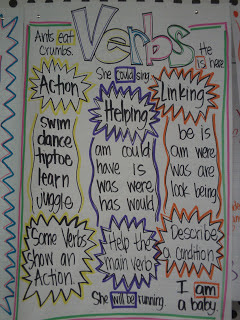 Verbs
Ants eat
crumbs.
He
is here
She could sing.
Action
Helping
Linking
swim
dance
tiptoe
learn
juggle
am could
have is
was were
has would
be is
am were
was are
look being
Some Verbs
show an
Action.
Help the
main verb
Describe
a condition
She will be running.
I am
a baby.